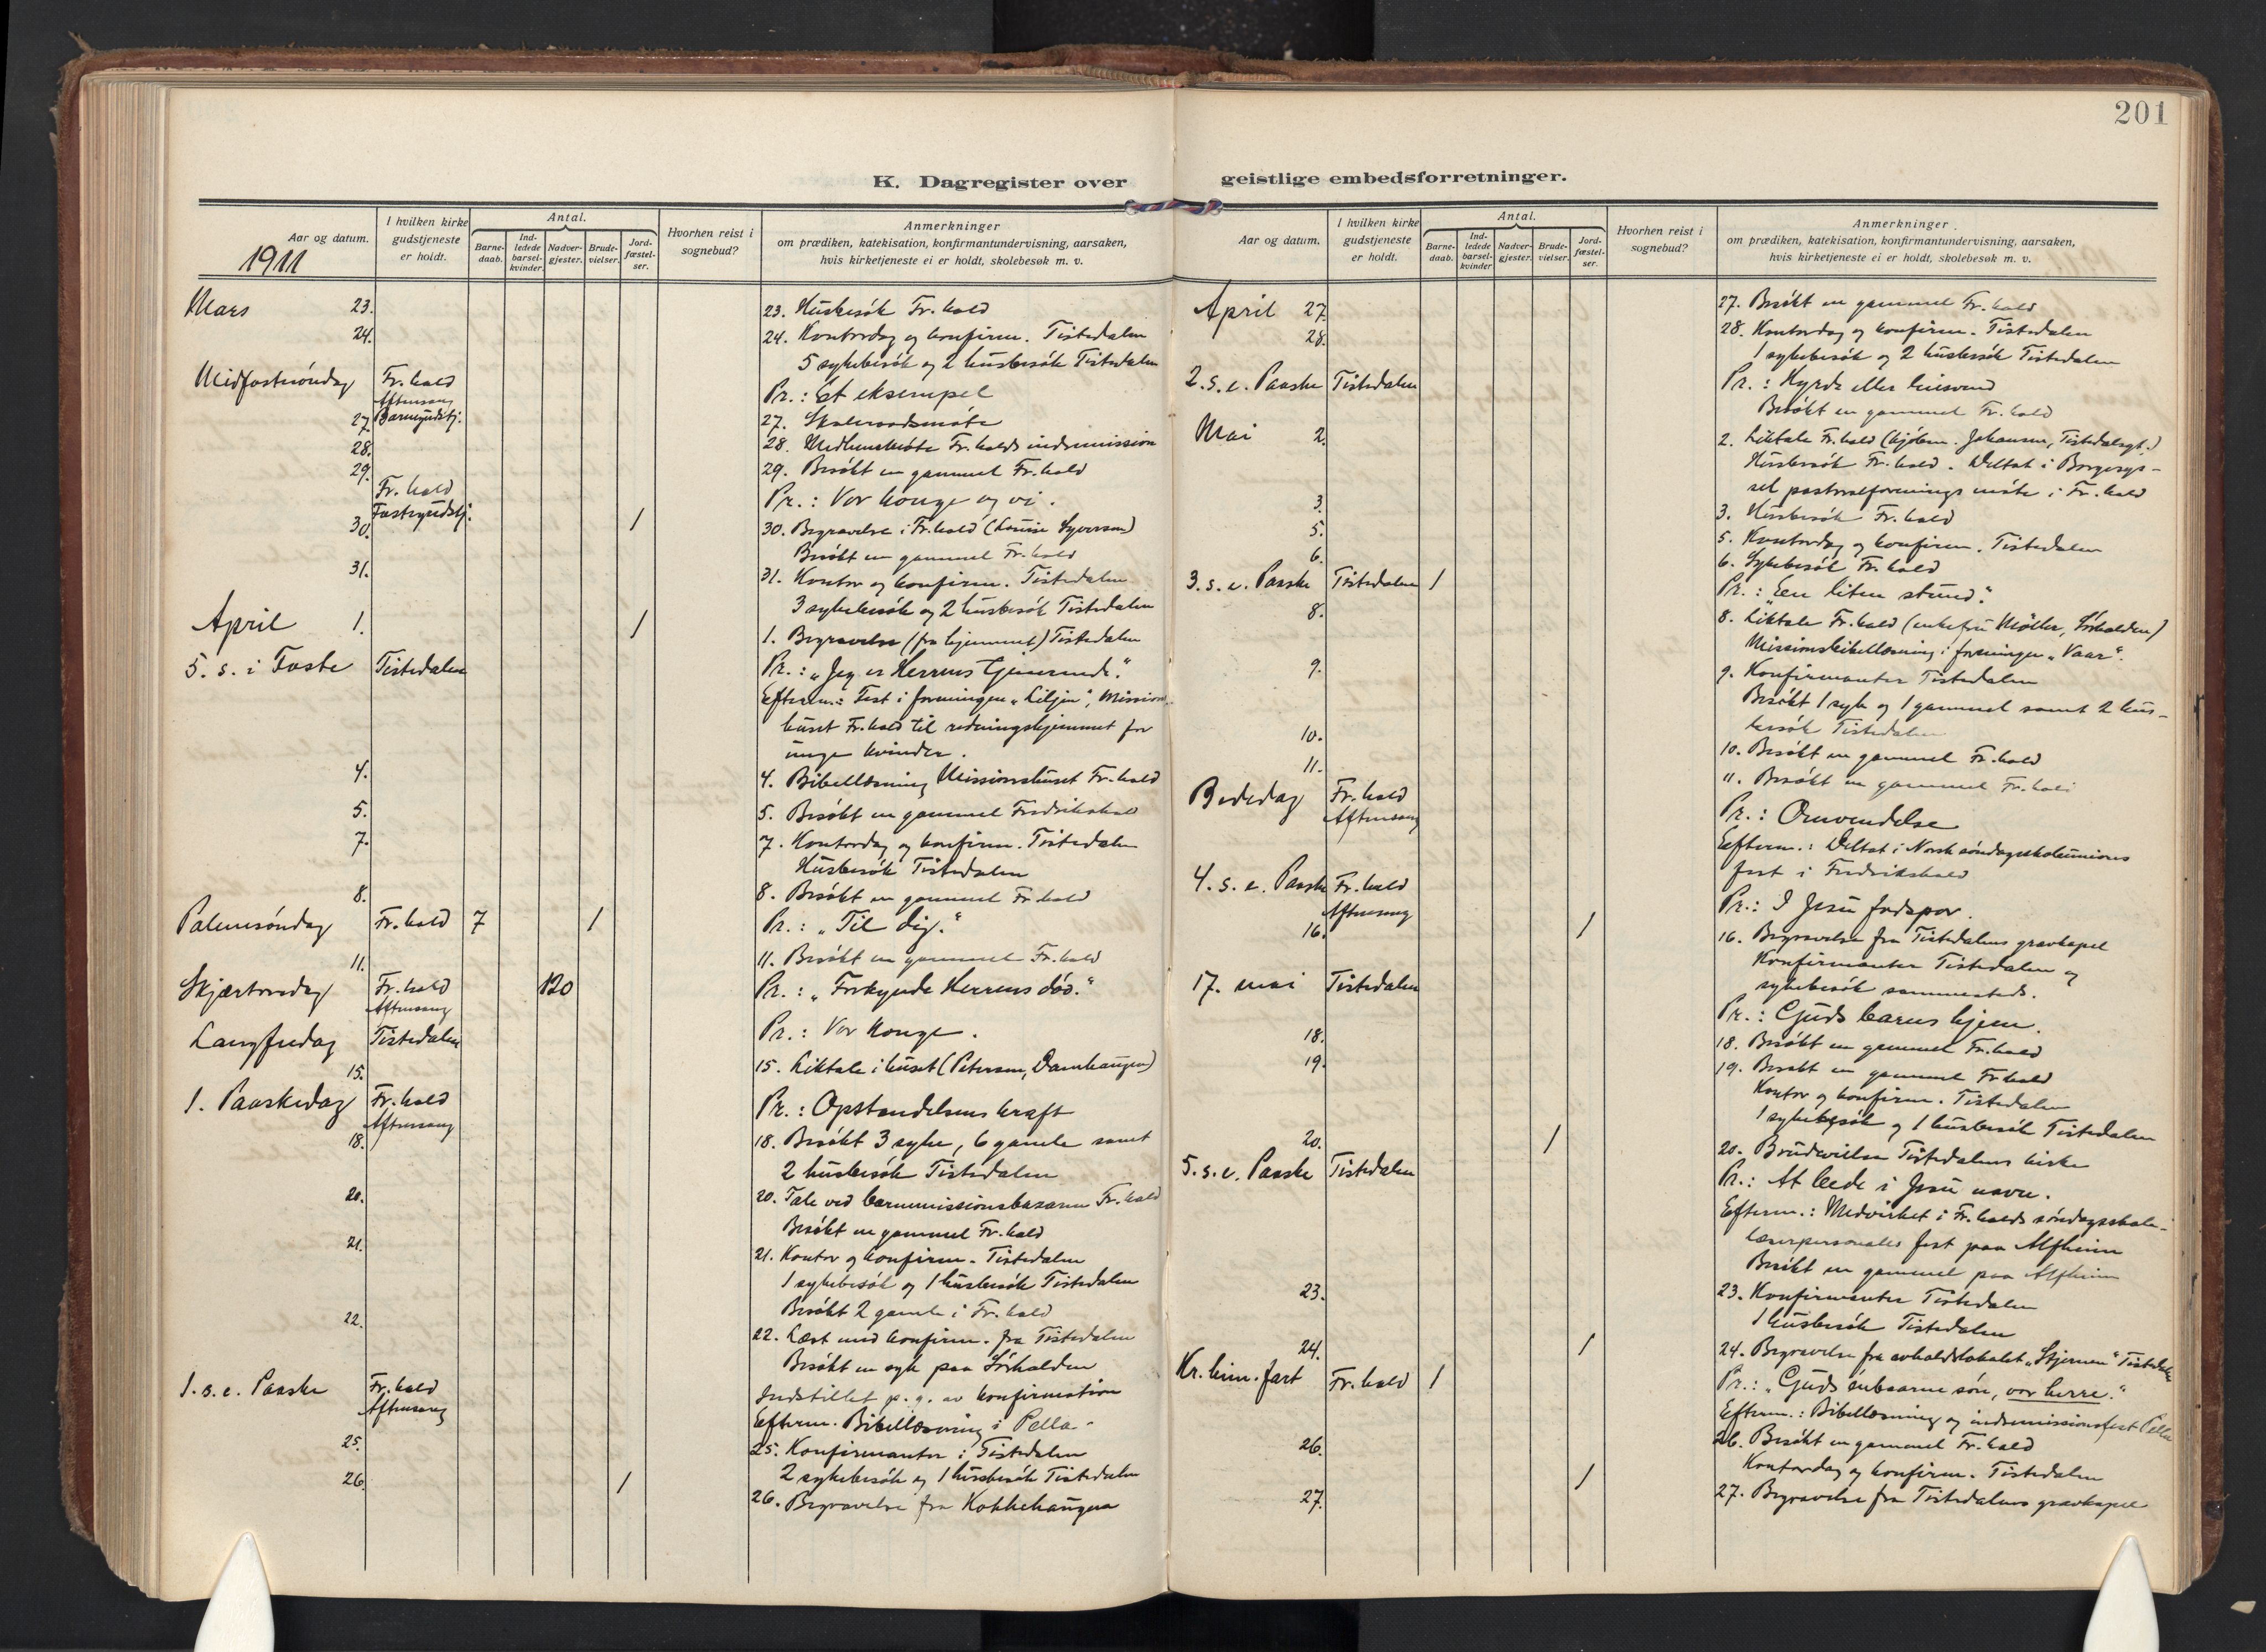 201
K. Dagregister over geistlige embedsforretninger.
Aar og datum.
I hvilken kirke gudstjeneste er holdt.
Antal.
Barne-daab.
Ind-ledede barsel-kvinder.
Nadver-gjester.
Brude-vielser.
Jord-fæstel-ser.
Hvorhen reist i sognebud?
Anmerkninger
om prædiken, katekisation, konfirmantundervisning, aarsaken,
hvis kirketjeneste ei er holdt, skolebesøk m. v.
1911
Mars 23. 23. Husbesök Fr.hald
24. 24. Kontordag og konfirm. Tistedalen
5 sykebesök og 2 husbesök Tistedalen
Midfastesöndag Fr.hald Aftensang Pr.: Et eksempel
27. Barnegudstj. 27. Skoleraadsmöte
28. 28. Medlemsmöte Fr.halds indremission
29. 29. Besökt en gammel Fr.hald
Fr.hald Fastegudstj. Pr.: Vor konge og vi.
30. 1 30. Begravelse i Fr.hald (Louise Syversen)
Besökt en gammel Fr.hald
31. 31. Kontor og konfirm. Tistedalen
3 sykebesök og 2 husbesök Tistedalen
April 1. 1 1. Begravelse (fra hjemmet) Tistedalen
5. s. i Faste Tistedalen Pr.: „Jeg er Herrens tjenerinde."
Efterm.: Fest i foreningen „Liljen", Missions-
huset Fr.hald til redningshjemmet for
unge kvinder.
4. 4. Bibellæsning Missionshuset Fr.hald
5. 5. Besökt en gammel Fredrikshald
7. 7. Kontordag og konfirm. Tistedalen
Husbesök Tistedalen
8. 8. Besökt en gammel Fr.hald
Palmesöndag Fr.hald 7 1 Pr.: „Til dig."
11. 11. Besökt en gammel Fr.hald
Skjærtorsdag Fr.hald Aftensang 120 Pr.: „Forkynde Herrens död."
Langfredag Tistedalen Pr.: Vor Konge.
15. 15. Liktale i huset (Petersen, Damhaugen)
1. Paaskedag Fr.hald Aftensang Pr.: Opstandelsens kraft
18. 18. Besökt 3 syke, 6 gamle samt
2 husbesök Tistedalen
20. 20. Tale ved barnemissionsbasaren Fr.hald
Besökt en gammel Fr.hald
21. 21. Kontor og konfirm. Tistedalen
1 sykebesök og 1 husbesök Tistedalen
Besökt 2 gamle i Fr.hald
22. 22. Læst med konfirm. fra Tistedalen
Besökt en syk paa Sörhalden
1. s. e. Paaske Fr.hald Aftensang Indstillet p. g. av konfirmation
Efterm. Bibellæsning i Pella.
25. 25. Konfirmanter i Tistedalen
2 sykebesök og 1 husbesök Tistedalen
26. 1 26. Begravelse fra Kokkehaugen
Aar og datum.
I hvilken kirke gudstjeneste er holdt.
Antal.
Barne-daab.
Ind-ledede barsel-kvinder
Nadver-gjester.
Brude-vielser.
Jord-fæstel-ser.
Hvorhen reist i sognebud?
Anmerkninger
om prædiken, katekisation, konfirmantundervisning, aarsaken,
hvis kirketjeneste ei er holdt, skolebesøk m. v.
April 27. 27. Besökt en gammel Fr.hald
28. 28. Kontordag og konfirm. Tistedalen
1 sykebesök og 2 husbesök Tistedalen
2. s. e. Paaske Tistedalen Pr.: Hyrde eller leiesvend
Besökt en gammel Fr.hald
Mai 2. 2. Liktale Fr.hald (kjöbm. Johansen, Tistedalsgt.)
Husbesök Fr.hald. Deltat i Borgesys-
sel pastoralforenings möte i Fr.hald
3. 3. Husbesök Fr.hald
5. 5. Kontordag og konfirm. Tistedalen
6. 6. Sykebesök Fr.hald
3. s. e. Paaske Tistedalen 1 Pr.: „Een liten stund."
8. 8. Liktale Fr.hald (enkefru Möller, Sörhalden)
Missionsbibellæsning i foreningen „Vaar".
9. 9. Konfirmanter Tistedalen
Besökt 1 syk og 1 gammel samt 2 hus-
besök Tistedalen
10. 10. Besökt en gammel Fr.hald
11. 11. Besökt en gammel Fr.hald
Bededag Fr.hald Aftensang Pr.: Omvendelse
Efterm.: Deltat i Norsk söndagsskoleunions
fest i Fredrikshald
4. s. e. Paaske Fr.hald Aftensang Pr.: I Jesu fodspor.
16. 1 16. Begravelse fra Tistedalens gravkapel
Konfirmanter Tistedalen og
sykebesök sammesteds.
17. mai Tistedalen Pr.: Guds barns hjem.
18. 18. Besökt en gammel Fr.hald
19. 19. Besökt en gammel Fr.hald
Kontor og konfirm. Tistedalen
1 sykebesök og 1 husbesök Tistedalen
20. 1 20. Brudevielse Tistedalens kirke
5. s. e. Paaske Tistedalen Pr.: At bede i Jesu navn.
Efterm.: Medvirket i Fr.halds söndagsskole-
lærerpersonales fest paa Alfheim
Besökt en gammel paa Alfheim
23. 23. Konfirmanter Tistedalen
1 husbesök Tistedalen
24. 1 24. Begravelse fra avholdslokalet „Stjernen" Tistedalen
Kr. him. fart Fr.hald 1 Pr.: „Guds enbaarne sön, vor herre."
Efterm.: Bibellæsning og indremissionsfest Pella
26. 26. Besökt en gammel Fr.hald
Kontordag og konfirm. Tistedalen
27. 1 27. Begravelse fra Tistedalens gravkapel